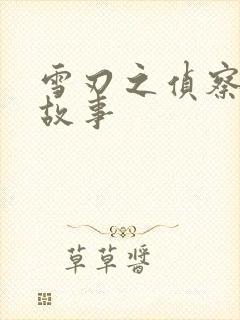 雪刃之偵察
故事
草草醬